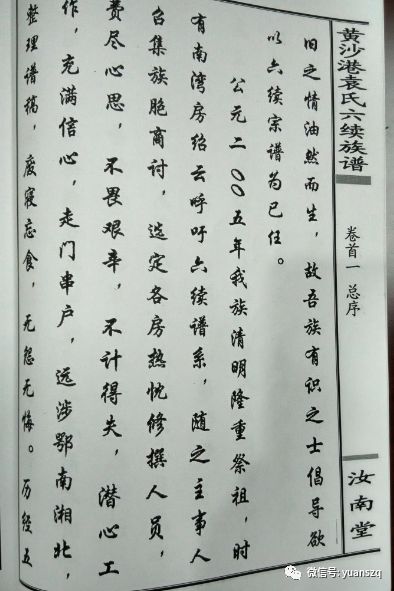 黄沙港袁氏六续族谱
卷首一 总序
汝南堂
旧之情油然而生，故吾族有识之士倡导欲
以六续宗谱为己任。
公元二〇〇五年我族清明隆重祭祖，时
有南湾房绍云呼吁六续谱系，随之主事人
召集族胞商讨，选定各房热忱修撰人员，
费尽心思，不畏艰辛，不计得失，潜心工
作，充满信心，走门串户，远涉鄂南湘北，
整理谱稿，废寝忘食，无怨无悔。历经五
微信号: yuanszq